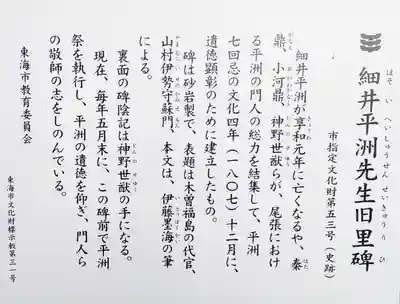 細井平洲先生旧里碑
ほそ い へいしゅうせん せいきゅうり ひ
市指定文化財第五三号（史跡）
細井平洲が享和元年に亡くなるや、秦
鼎、小河鼎、神野世猷らが、尾張におけ
る平洲の門人の総力を結集して、平洲
七回忌の文化四年（一八〇七）十二月に、
遺徳顕彰のために建立したもの。
碑は砂岩製で、表題は木曽福島の代官、
山村伊勢守蘇門、本文は、伊藤墨海の筆
による。
裏面の碑陰記は神野世猷の手になる。
現在、毎年五月末に、この碑前で平洲
祭を執行し、平洲の遺徳を仰ぎ、門人ら
の敬師の志をしのんでいる。
東海市教育委員会
東海市文化財標示板第三一号